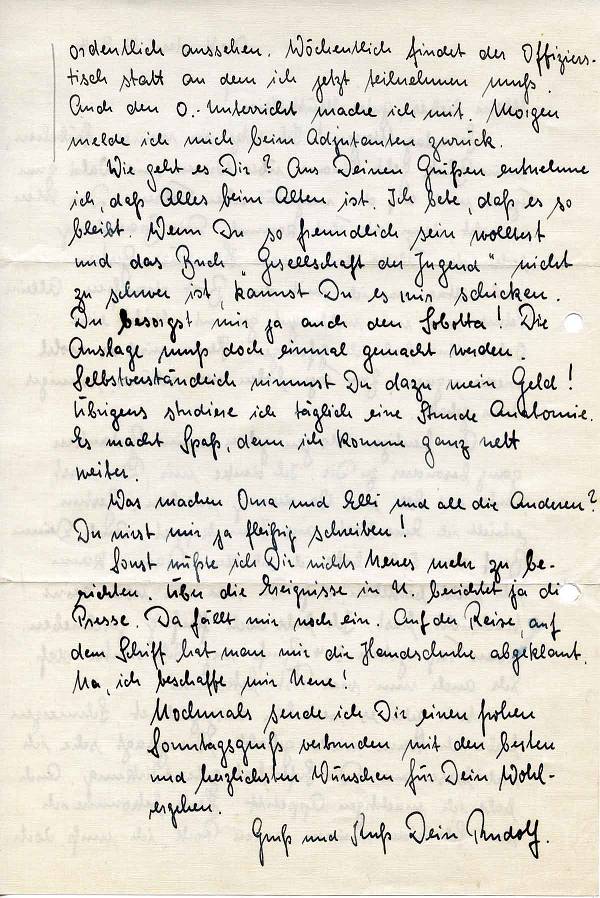 ordentlich aussehen. Wöchentlich findet der Offiziers-
tisch statt an dem ich jetzt teilnehmen muß.
Auch den O.-Unterricht mache ich mit. Morgen
melde ich mich beim Adjutanten zurück.
Wie geht es Dir? Aus Deinen Grüßen entnehme
ich, daß Alles beim Alten ist. Ich bete, daß es so
bleibt. Wenn Du so freundlich sein wolltest
und das Buch "Gesellschaft der Jugend" nicht
zu schwer ist, kannst Du es mir schicken.
Du besorgst mir ja auch den Sobotta! Die
Auslage muß doch einmal gemacht werden.
Selbstverständlich nimmst Du dazu mein Geld!
Übrigens studiere ich täglich eine Stunde Anatomie.
Es macht Spaß, denn ich komme ganz nett
weiter.
Was machen Oma und Elli und all die Anderen?
Du wirst mir ja fleißig schreiben!
Sonst wüßte ich Dir nichts Neues mehr zu be-
richten. Über die Ereignisse in N. berichtet ja di
Presse. Da fällt mir noch ein. Auf der Reise, auf
dem Schiff hat man mir die Handschuhe abgeklaut.
Na, ich beschaffe mir Neue!
Nochmals sende ich Dir einen frohen
Sonntagsgruß verbunden mit den besten
und herzlichsten Wünschen für Dein Wohl-
ergehen.
Gruß und Kuß Dein Rudolf.